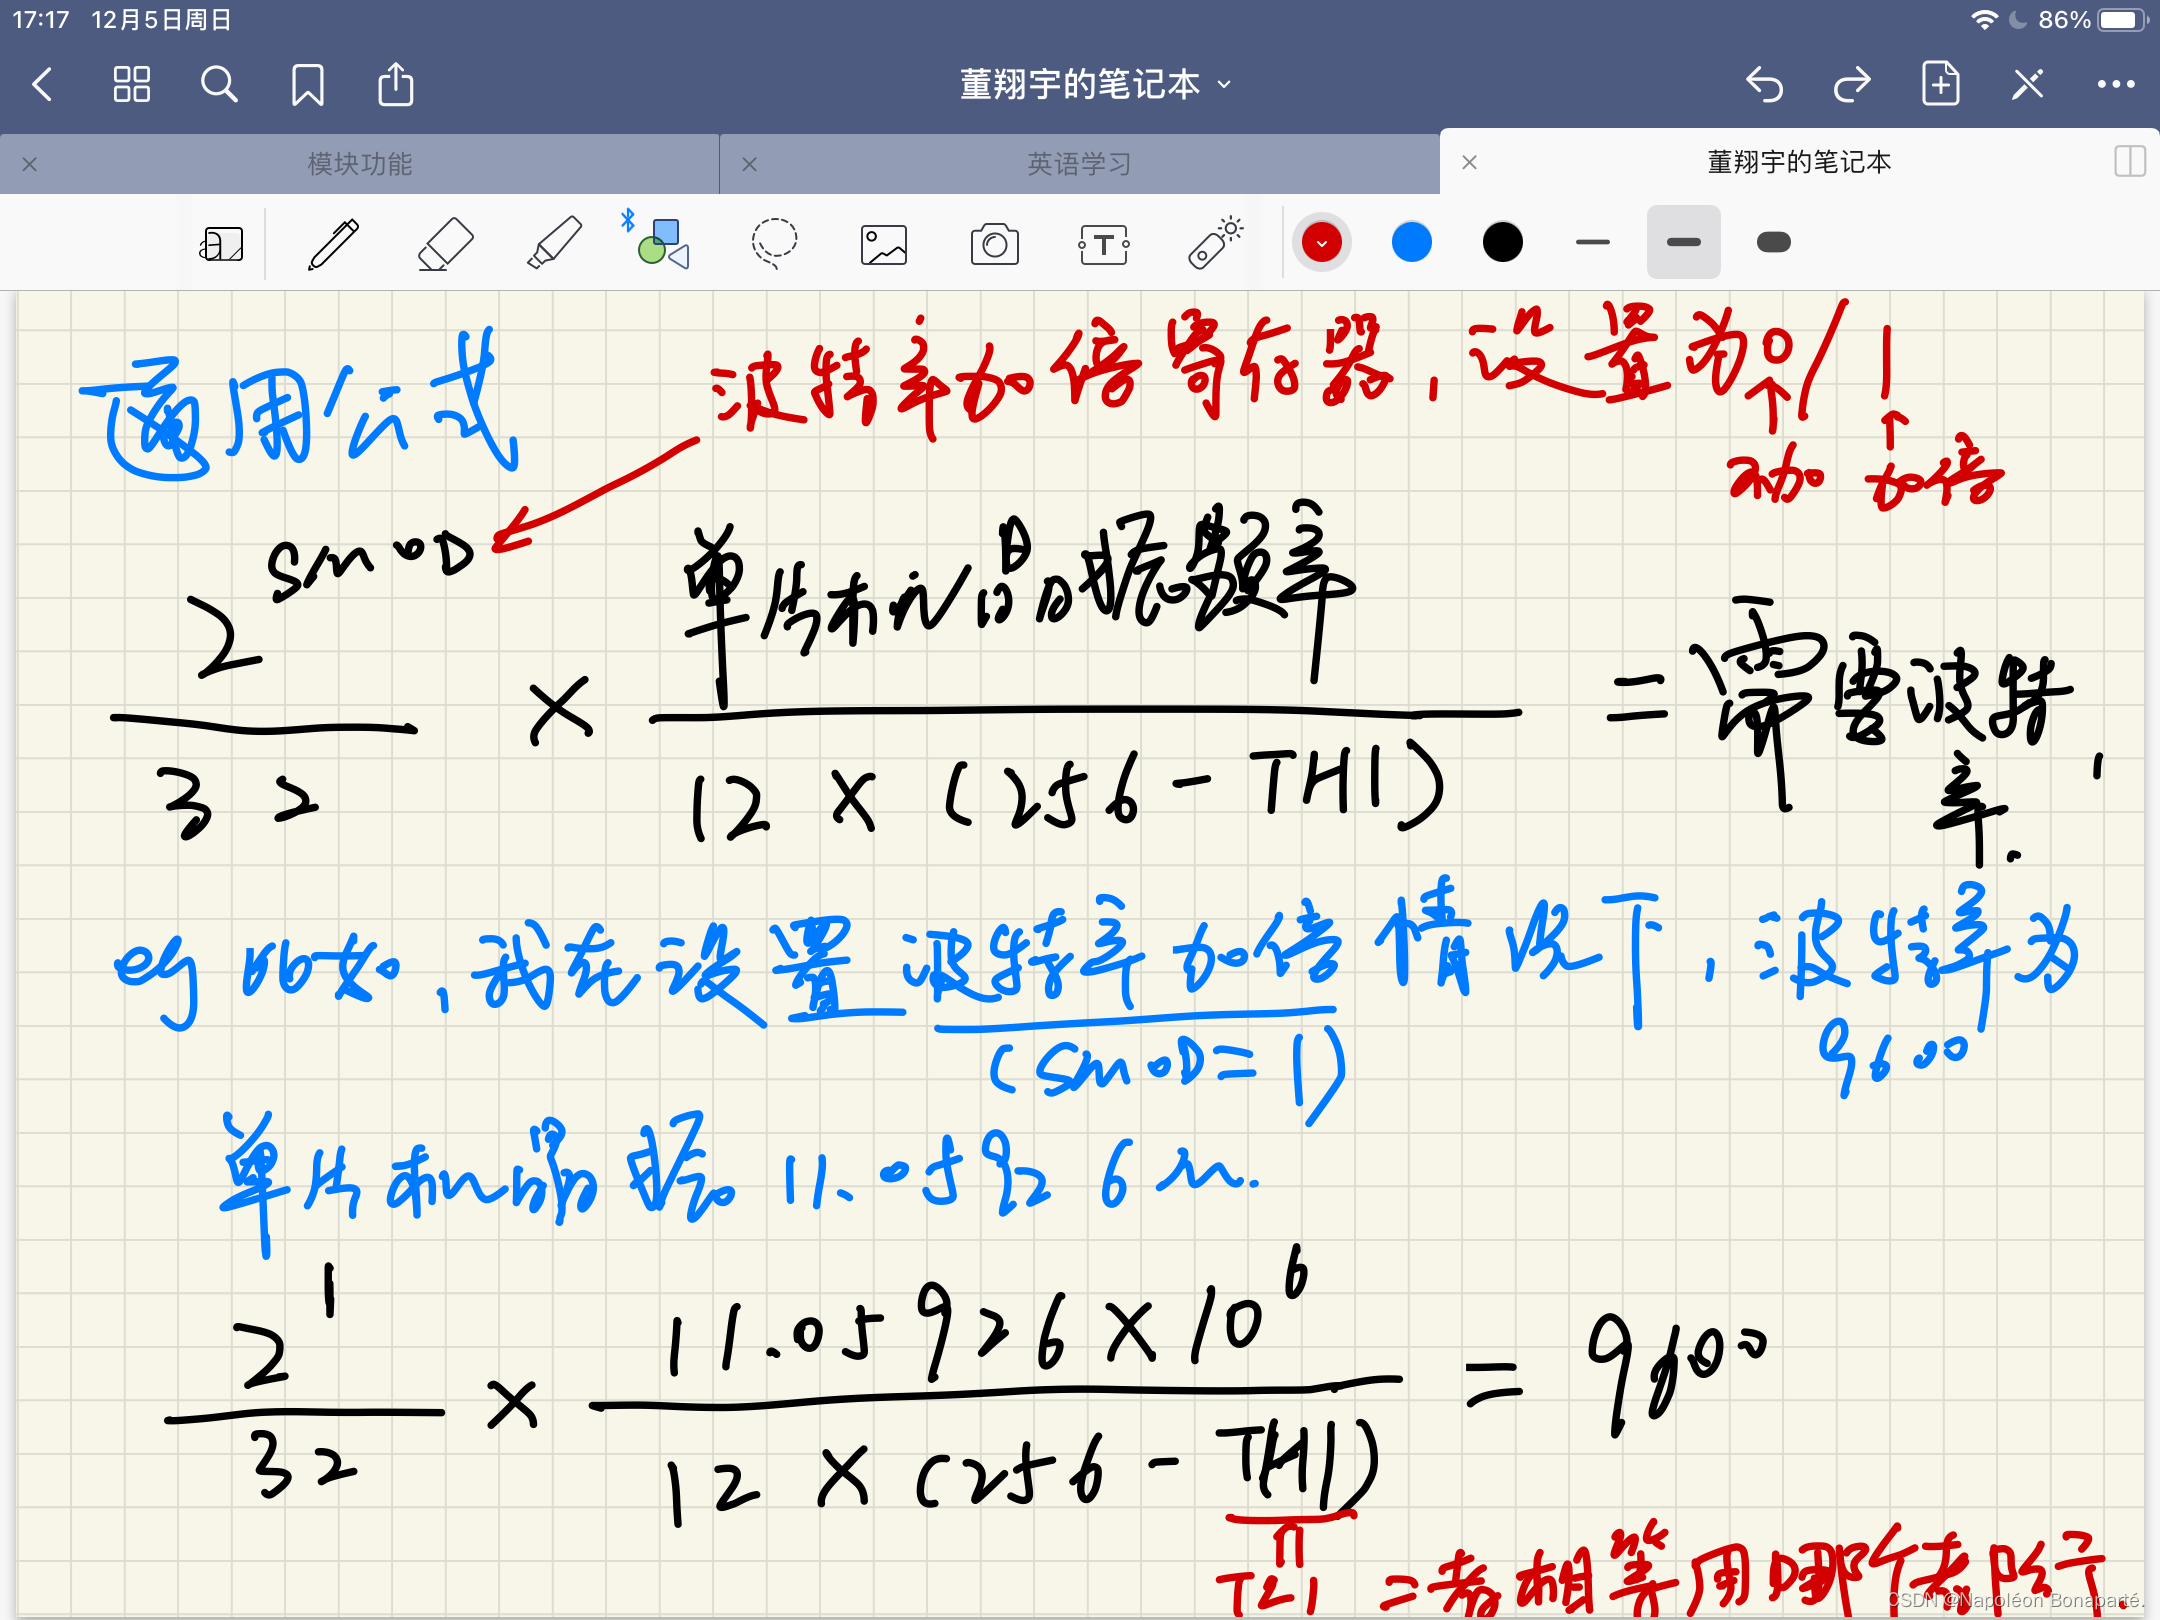 17:17 12月5日周日 86%
董翔宇的笔记本
模块功能 英语学习 董翔宇的笔记本
通用公式 波特率加倍寄存器,设置为0/1
不加 加倍
2^SMOD / 32 × 单片机的晶振频率 / 12×(256-TH1) = 需要波特率.
eg 比如,我在设置波特率加倍情况下,波特率为9600
(SMOD=1)
单片机晶振 11.0592 6 m.
2^1 / 32 × 11.05926×10^6 / 12×(256-TH1) = 9600
TL1 二者相等用哪个都行.
CSDN @Napoléon Bonaparté.